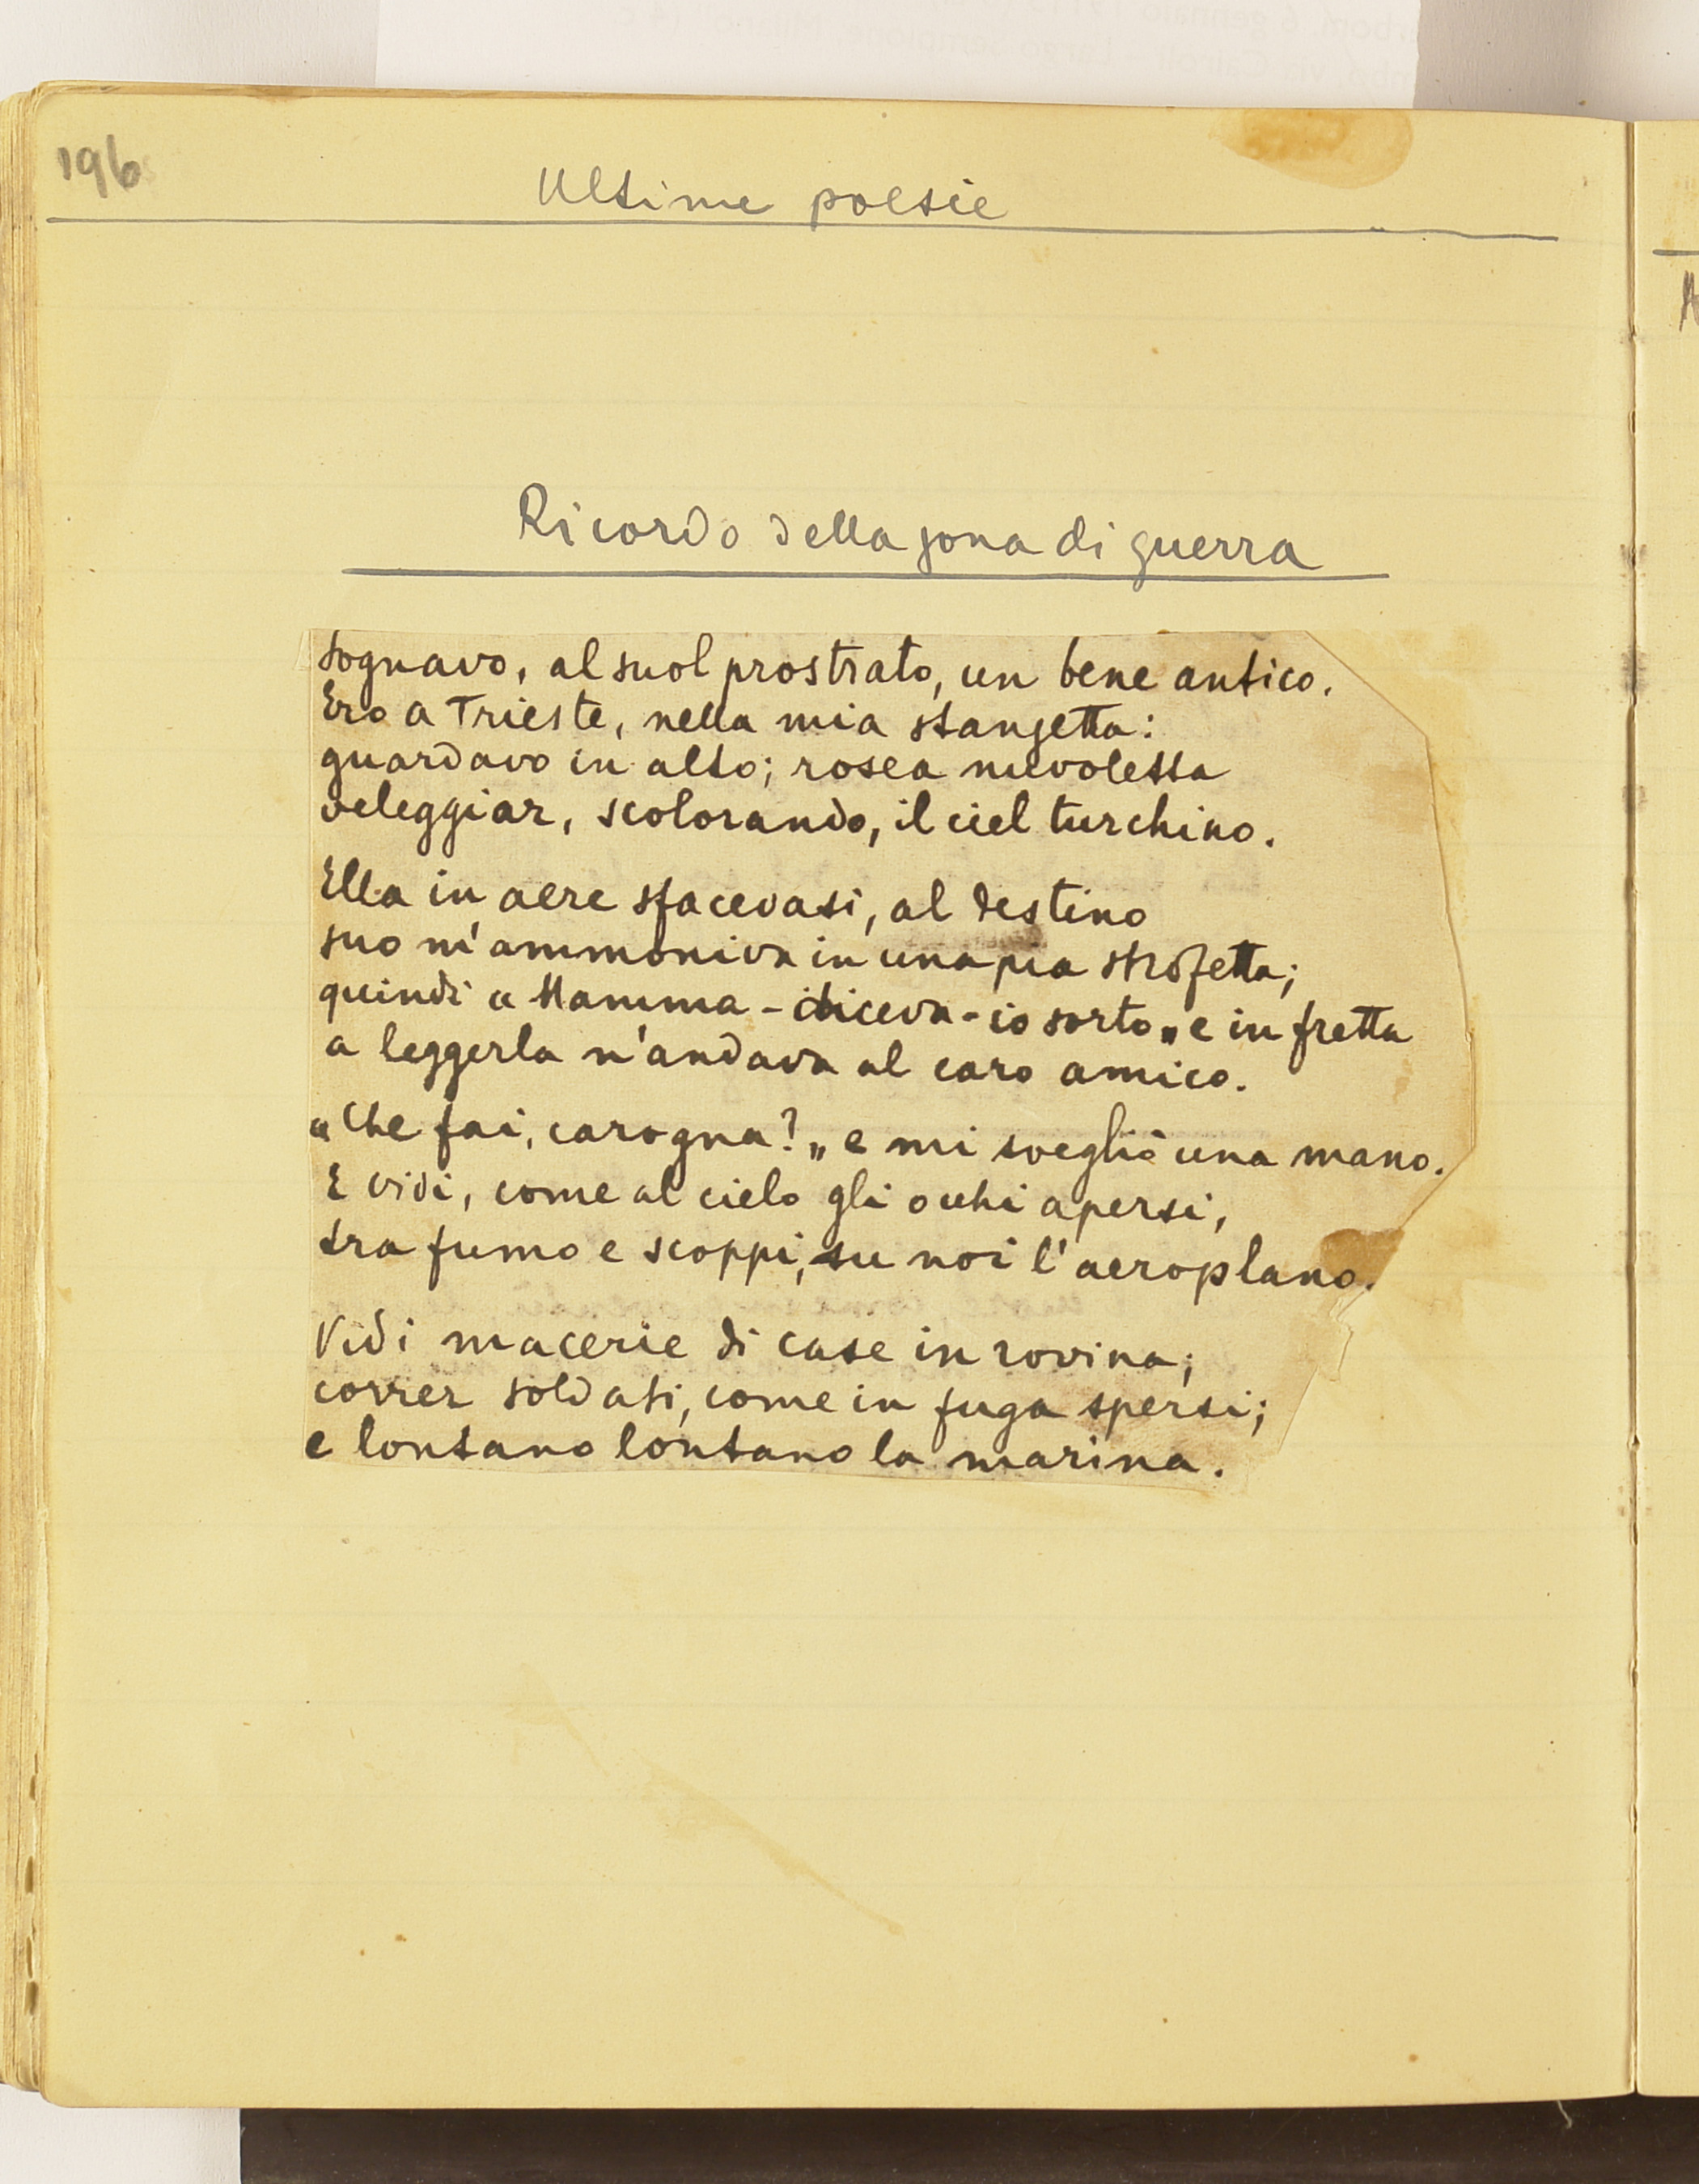 196
Ultime poesie
Ricordo della zona di guerra
Sognavo, al suol prostrato, un bene antico.
Ero a Trieste, nella mia stanzetta:
guardavo in alto; rosea nuvoletta
veleggiar, scolorando, il ciel turchino.
Ella in aere sfacevasi, al destino
suo m'ammoniva in una pia strofetta;
quindi « Mamma - diceva - io sorto „ e in fretta
a leggerla n'andava al caro amico.
« Che fai, carogna? „ e mi svegliò una mano.
E vidi, come al cielo gli occhi apersi,
tra fumo e scoppi, su noi l'aeroplano.
Vidi macerie di case in rovina;
correr soldati, come in fuga spersi;
e lontano lontano la marina.